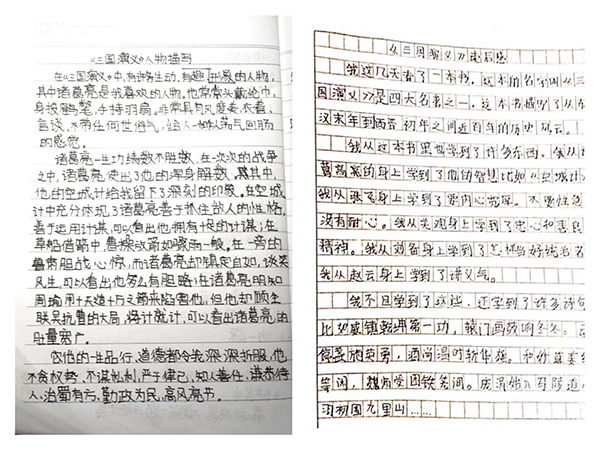 《三国演义》人物描写
在《三国演义》中,有许多生动、有趣、形象的人物,
其中诸葛亮是我喜欢的人物,他常常头戴纶巾,
身披鹤氅,手持羽扇。非常具有风度委,衣着、
言谈,不带任何世俗气,给人一种荡气回肠
的感觉。
诸葛亮一生功绩数不胜数,在一次次的战争
之中,诸葛亮使出了他的浑身解数。其中
他的空城计给我留下了深刻的印象。在空城
计中充分体现了诸葛亮善于抓住敌人的性格,
善于运用计谋,可以看出他拥有惊的计谋;在
草船借箭中曹操以箭如骤雨一般。在一旁的
鲁肃胆战心惊,而诸葛亮却镇定自如,谈笑
风生,可以看出他多么有胆略;在诸葛亮明知
周瑜用十天造十万之箭来陷害他,但他却顾全
联吴抗曹的大局,将计就计,可以看出诸葛亮的
肚量宽广。
他的一生品行、道德都令我深深折服,他
不贪权势、不谋私利,严于律己,知人善任,谦恭待
人,治蜀有方,勤政为民,高风亮节。
《三国演义》读后感
我这几天看了一本书,这本的名字叫《三
国演义》是四大名著之一,这本书描写了从东
汉末年到西晋初年之间近百年的历史风云。
我从这本书里也学到了许多东西。我从诸
葛亮的身上学到了他的智慧比如《空城计
我从张飞身上学到了要内心宽厚。不要性急
没有耐心。我从关羽身上学到了忠心和善良
精神。我从刘备身上学到了怎样
我从赵云身上学到了讲义气。
我不但学到了这些,还学到了许多诗句
比如威镇乾坤第一功,辕门画鼓响冬冬。云
停盏施英勇,酒尚温时斩华雄。
等闲,
羽初困九里山……